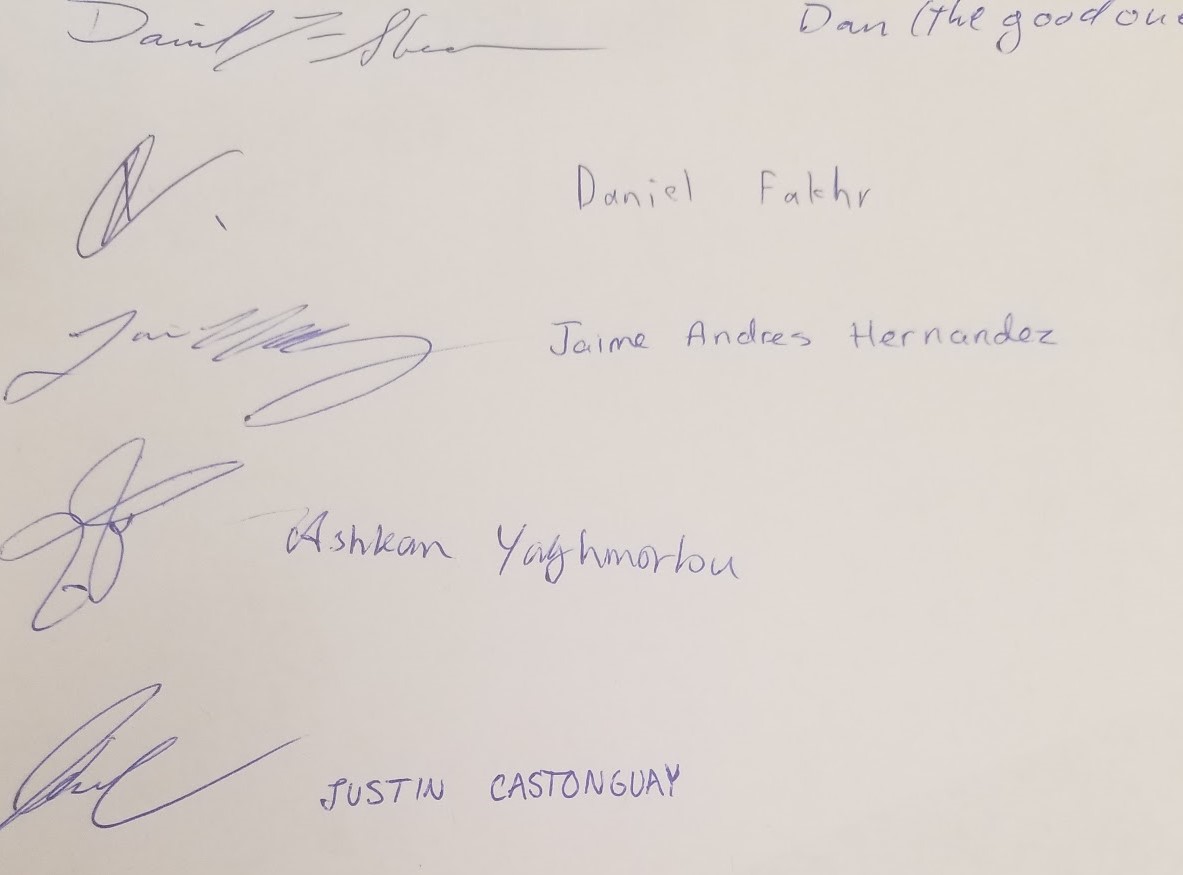 Daniel Dan (the good one
Daniel Fakhr
Jaime Andres Hernandez
Ashkan Yaghmorlou
JUSTIN CASTONGUAY